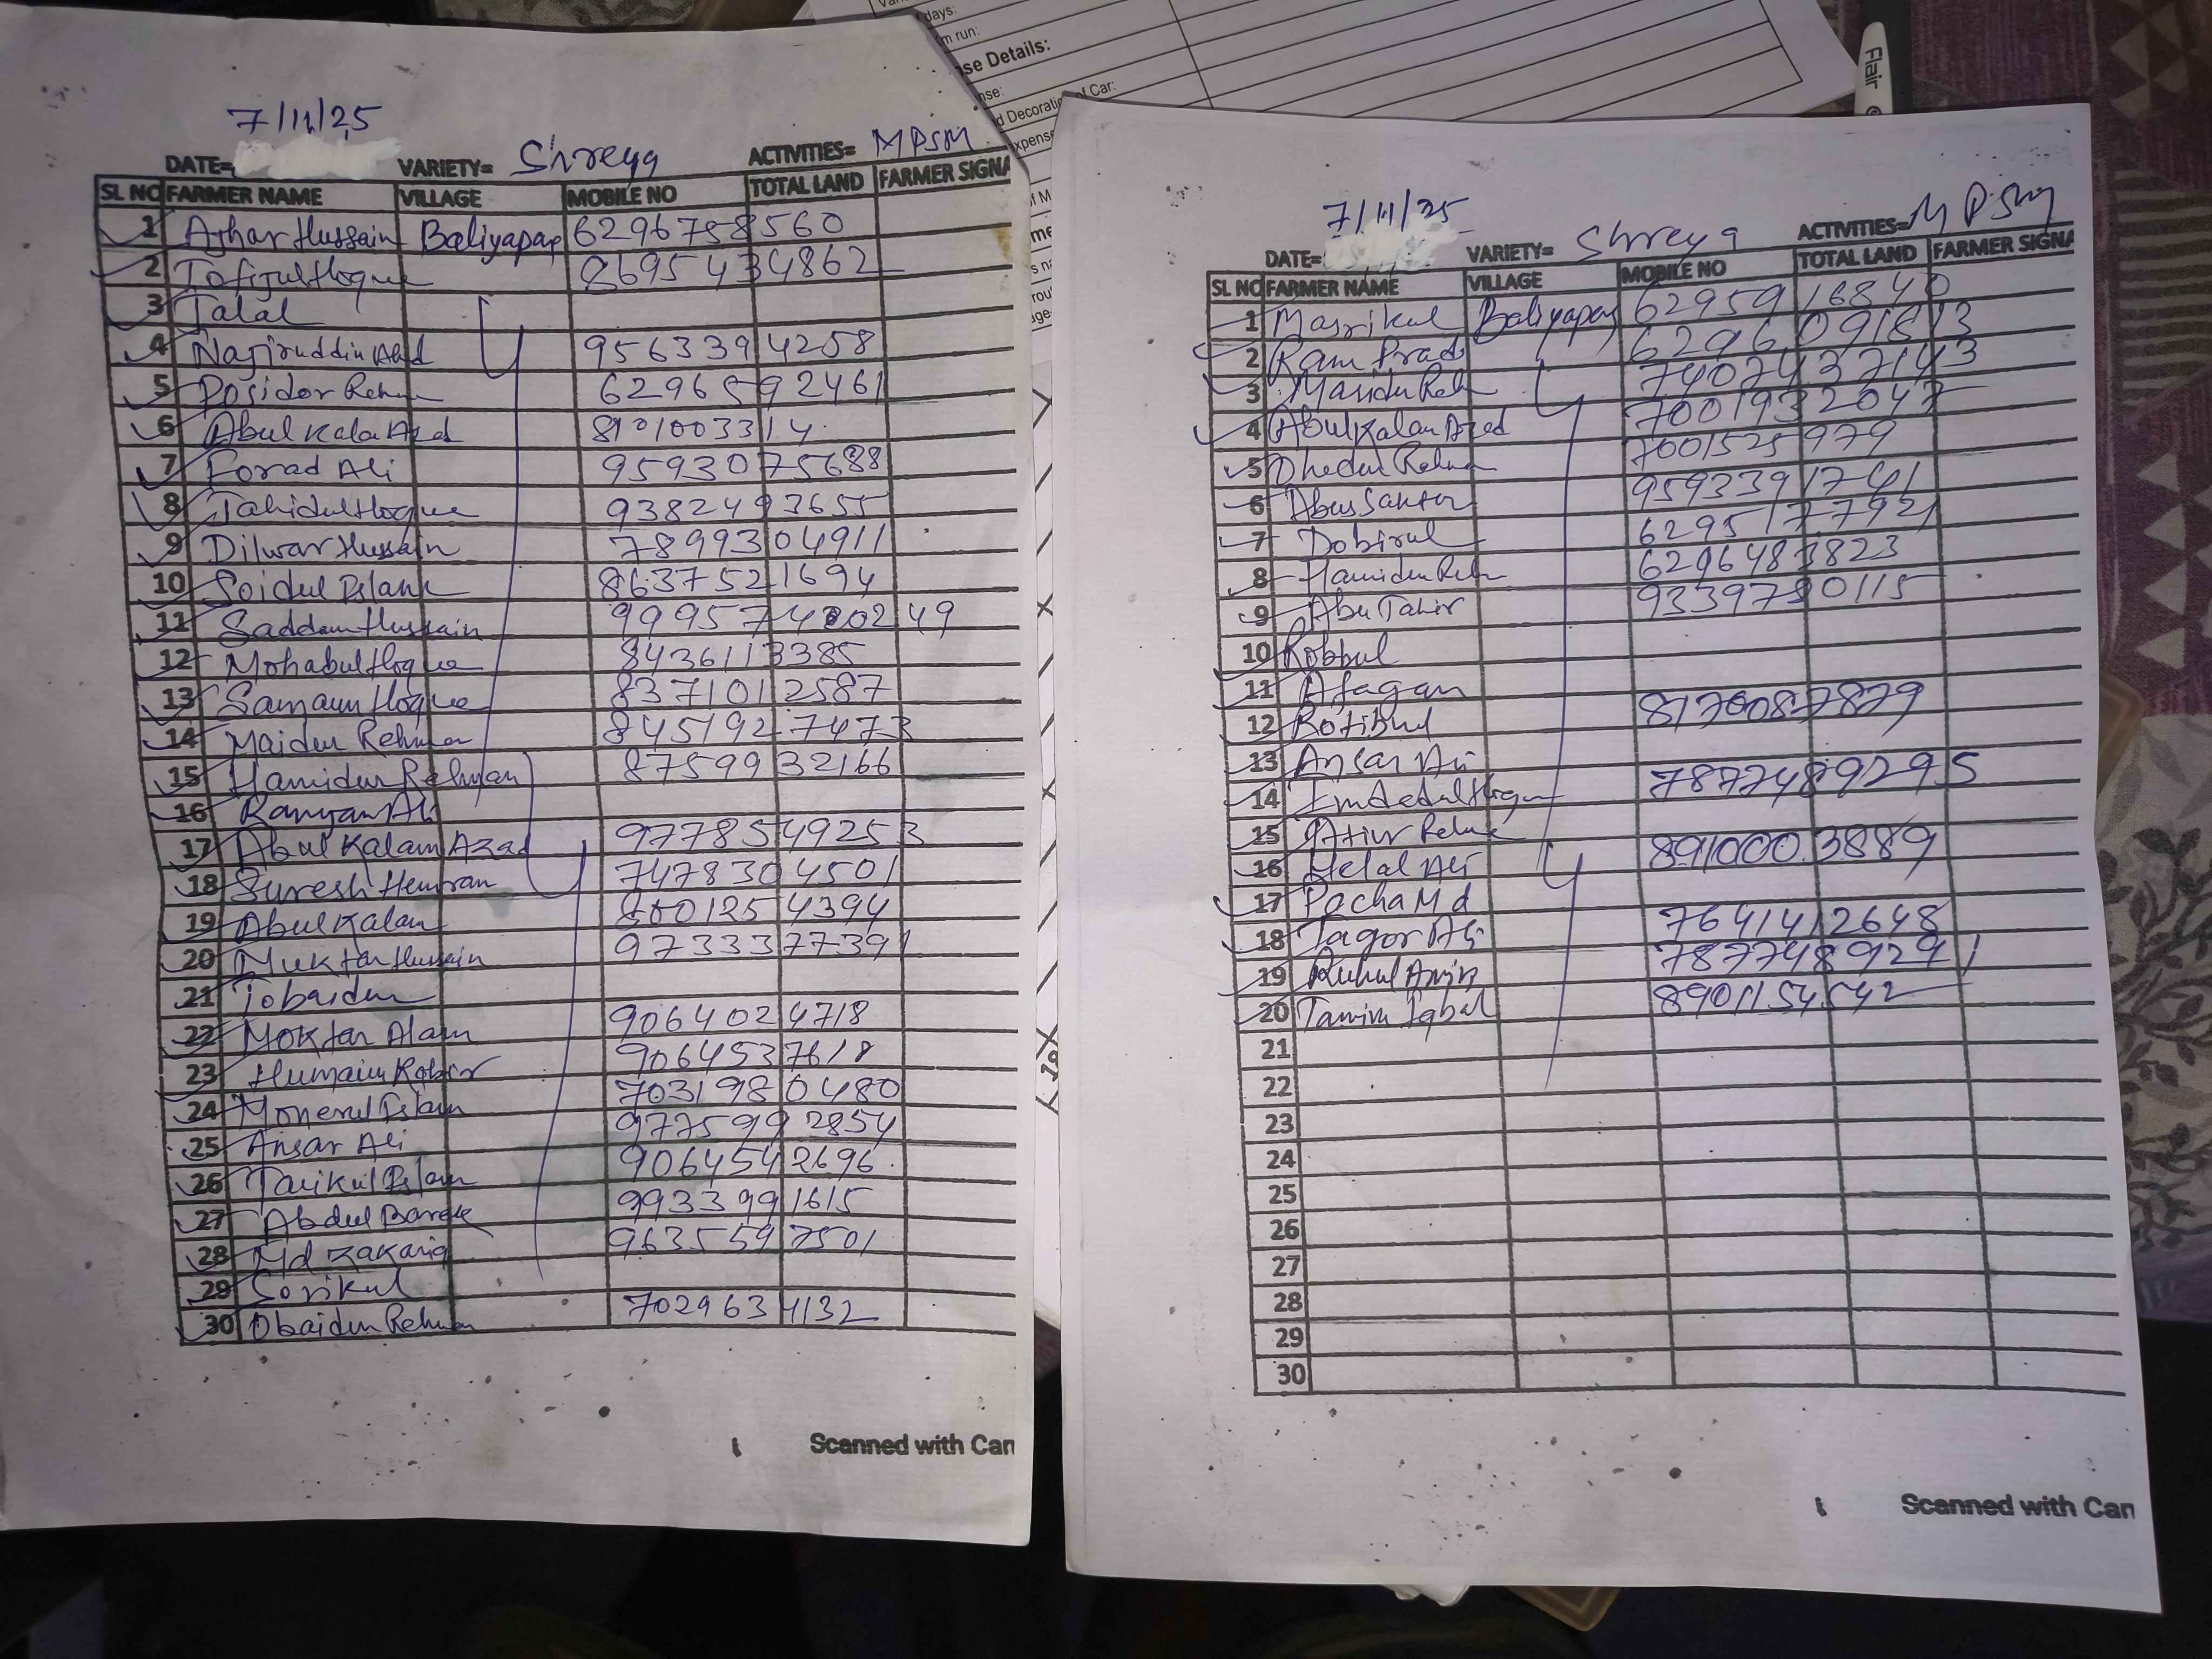 Vari
days:
m run:
se Details:
nse:
d Decoration of Car:
xpense
Flair
7/11/25
DATE= VARIETY= Shreya ACTIVITIES= MPSM
SL NO FARMER NAME VILLAGE MOBILE NO TOTAL LAND FARMER SIGNA
1 Azhar Hussain Baliyapap 6296758560
2 Tofizul Hoque 8695434862
3 Jalal
4 Najiruddin Ahd 9563394258
5 Posidor Rehm 6296592461
6 Abul Kala Azd
7 Forad Ali 9593075688
8 Tahidul Hoque 9382493655
9 Dilwar Hussain 7899304911
10 Soidul Islam 8637521694
11 Saddam Hussain
12 Mohabul Hoque 8436113385
13 Samaun Hoque 8371012587
14 Maidur Rehman 8451927473
15 Hamidur Rehman 8759932166
16 Ali
17 Abul Kalam Azad 9778549253
18 Suresh Hemram 7478304501
19 Abul Kalam
20 Muktar Hussain 9733377391
21 Tobaidur
22 Moktar Alam 9064024718
23 Humaun Kobir 9064537618
24 Monerul Islam 7031980480
25 Ansar Ali 9775992854
26 Tarikul Islam 9064542696
27 Abdul Barek 9933991615
28 Md Zakaria 9635597501
29 Sorikul
30 Obaidur Rehman 7029634132
Scanned with Can
7/11/25
DATE= VARIETY= Shreya ACTIVITIES= MPSM
SL NO FARMER NAME VILLAGE MOBILE NO TOTAL LAND FARMER SIGNA
1 Masrikul Baliyapap 6295916840
2 Ram Prad 6296091813
3 Rehm 7407437143
4 Abul Kalam Azed 7001932047
5 Rehman 7001525979
6 Abus Sattar 9593391741
7 Dobirul 6295177921
8 Hamidur Rehm 6296483823
9 Abu Tahir
10 Robbul
11 Afagan
12 Rotibul 8170087879
13 Ansar Ali
14 Imdedul Hoque 7877489295
15 Atiur Rehma
16 Helal Ali 8910003889
17 Pacha Md
18 Tagor Ali 7641412648
19 Ruhul Amin 7877489291
20 Tamim Iqbal 8901154542
21
22
23
24
25
26
27
28
29
30
Scanned with Can